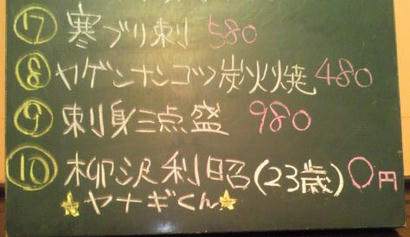 ⑦ 寒ブリ刺 580
⑧ ヤゲンナンコツ炭火焼 480
⑨ 刺身三点盛 980
⑩ 柳沢利昭(23歳) 0円
★ヤナギくん★